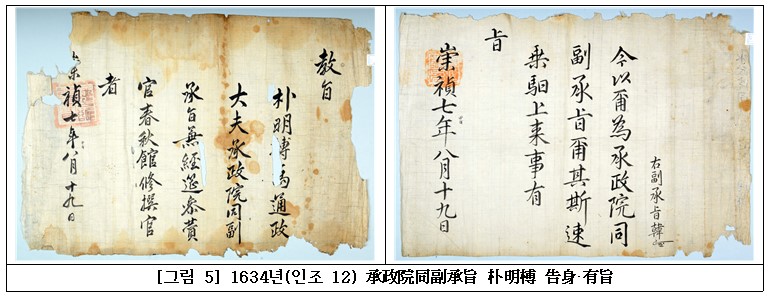 教旨
朴明榑爲通政
大夫承政院同副
承旨兼經筵參贊
官春秋館修撰官
者
崇禎七年八月十九日
右副承旨韓
今以爾為承政院同
副承旨爾其斯速
乘馹上来事有
旨
崇禎七年八月十九日
[그림 5] 1634년(인조 12) 承政院同副承旨 朴明榑 告身·有旨